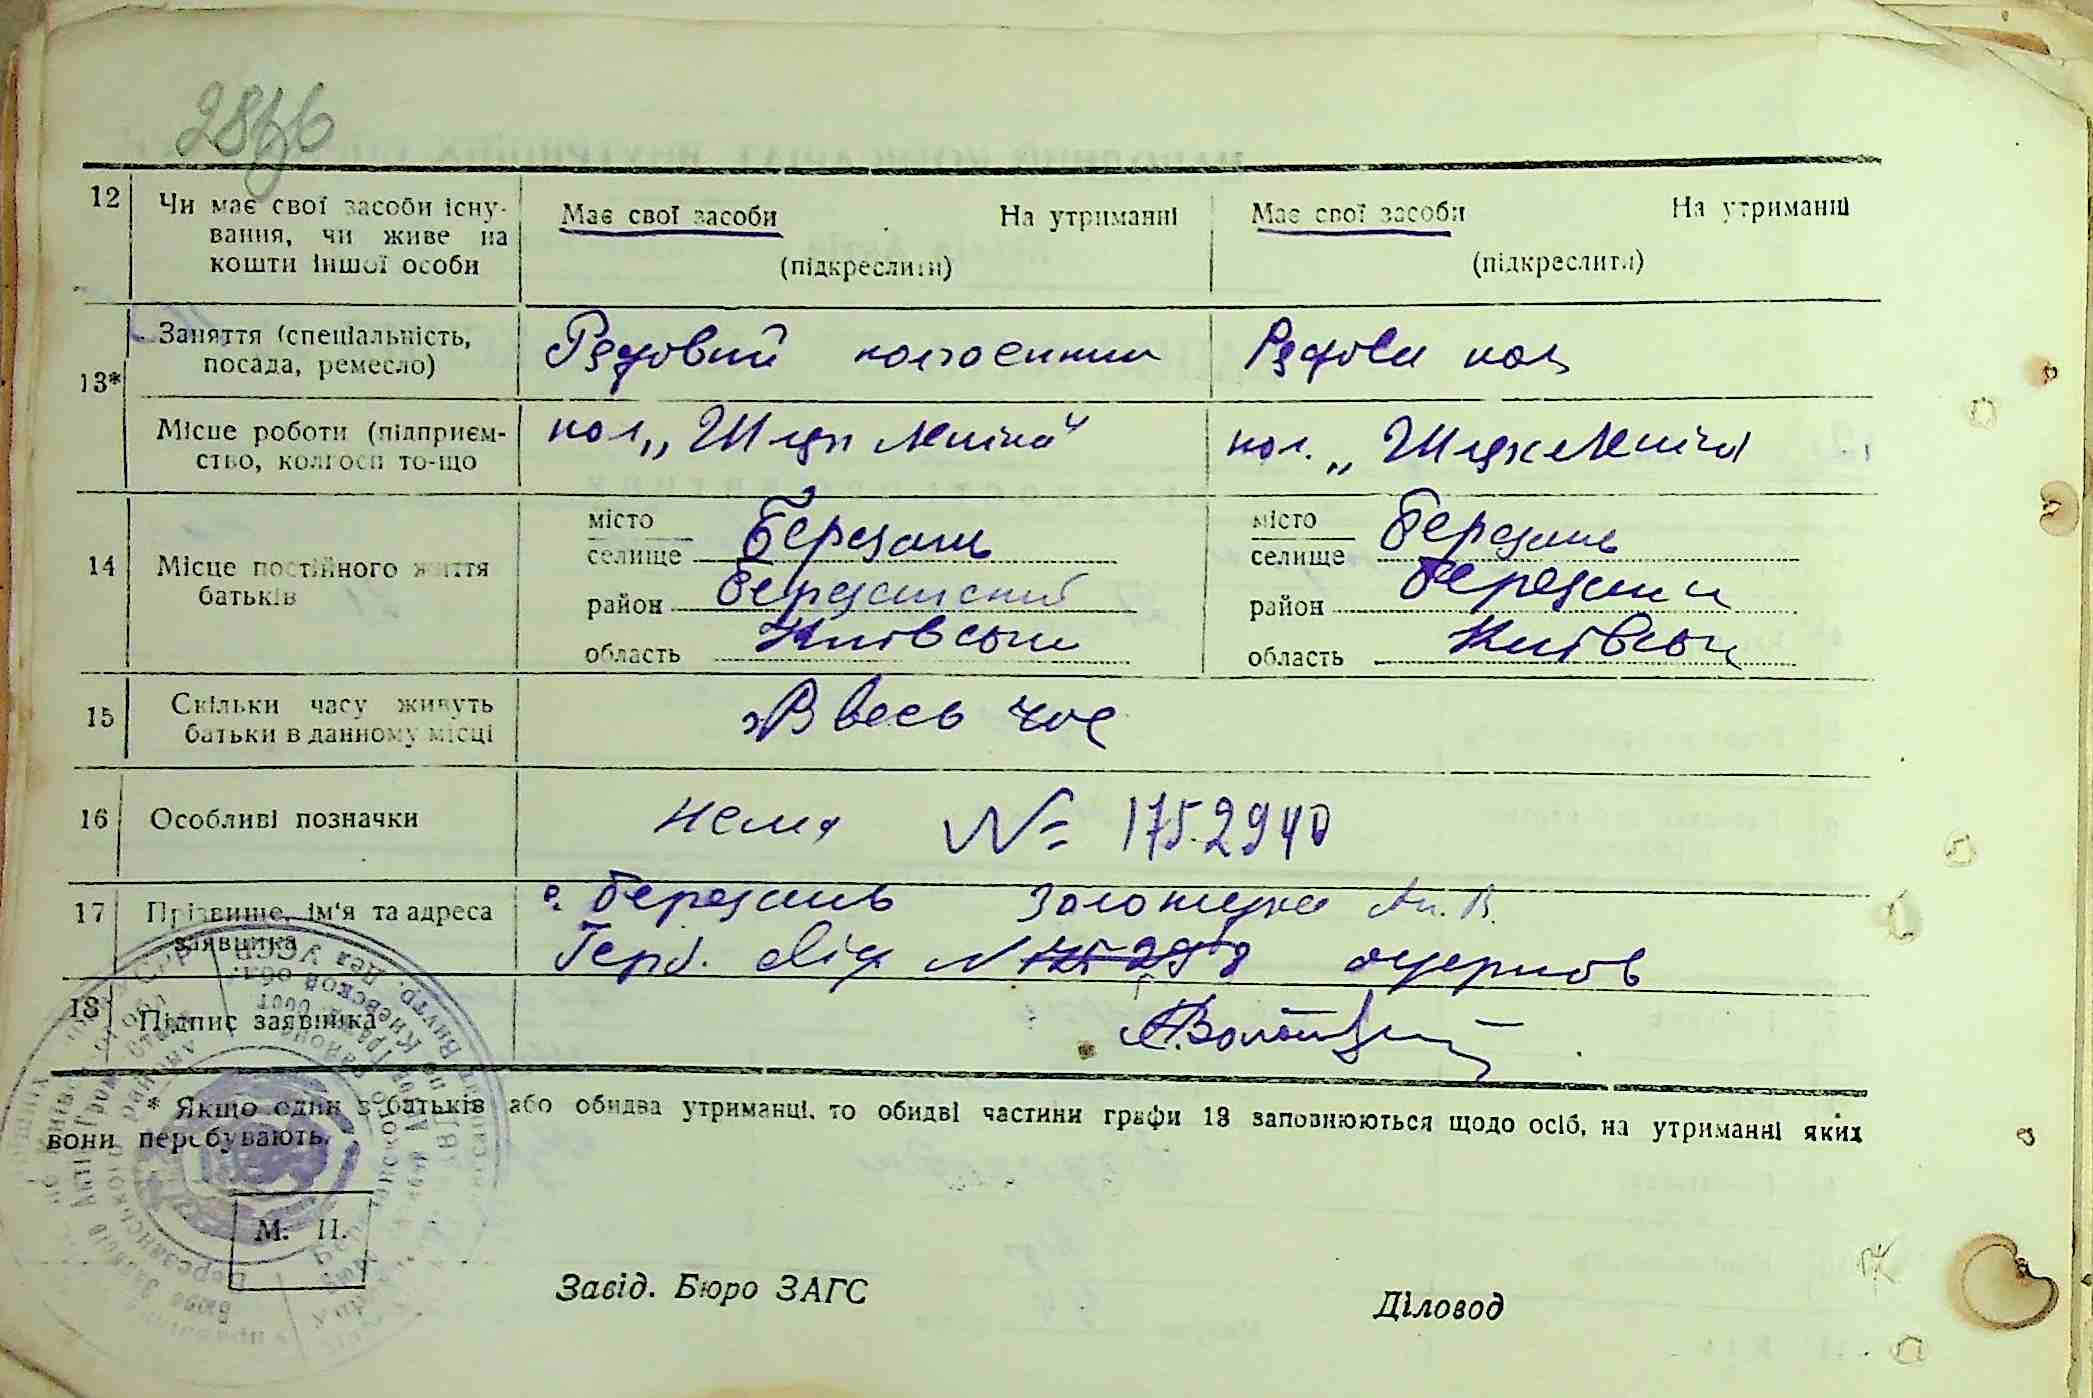 12 Чи має свої засоби існу-
вання, чи живе на
кошти іншої особи
Має свої засоби На утриманні
(підкреслити)
Має свої засоби На утриманні
(підкреслити)
13*
Заняття (спеціальність,
посада, ремесло)
Рядовий колгоспник
Рядова кол
Місце роботи (підприєм-
ство, колгосп то-що
кол „
кол. „
14 Місце постійного життя
батьків
місто
селище Березань
район Березанский
область Київськи
місто
селище Березань
район
область
15 Скільки часу живуть
батьки в данному місці
Ввесь час
16 Особливі позначки
нема № 1752940
17 Прізвище, ім'я та адреса
заявника
с. Березань Ан. В.
Герб. свід №
18 Підпис заявника
* Якщо один з батьків або обидва утриманці, то обидві частини графи 13 заповнюються щодо осіб, на утриманні яких
вони перебувають.
М. П.
Завід. Бюро ЗАГС
Діловод